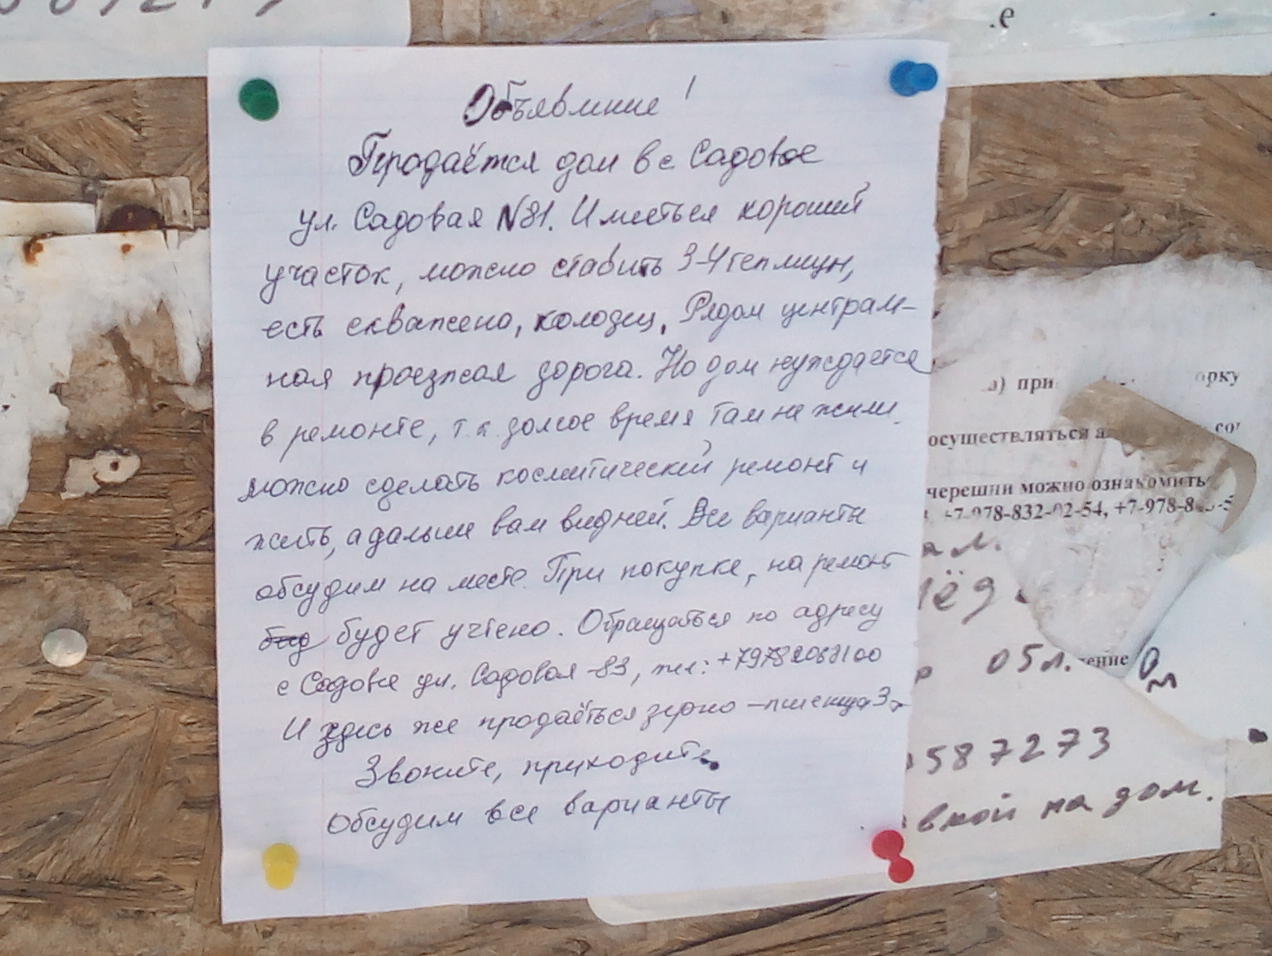 Объявление!
Продаётся дом в с Садовое
ул. Садовая №81. Имееться хороший
участок, можно ставить 3-4 теплицы,
есть скважено, колодец. Рядом централь-
ная проезжая дорога. Но дом нуждается
в ремонте, т.к. долгое время там не жили.
Можно сделать косметический ремонт и
жить, а дальше вам видней. Все варианты
обсудим на месте. При покупке, на ремонт
будет учтено. Обращаться по адресу
с Садовое ул. Садовая -83, тел:
И здесь же продаёться зерно - пшеница 3
Звоните, приходите
Обсудим все варианты
е.
а) при
орку
осуществляться
черешни можно ознакомить
+7-978-832-02-54, +7-978-8
ал.
05л.
ение
587273
вкой на дом.